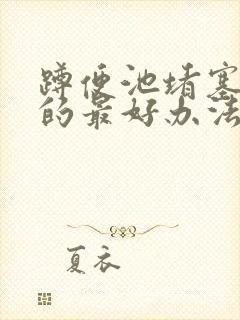 蹲便池堵塞
的最好办法
夏衣